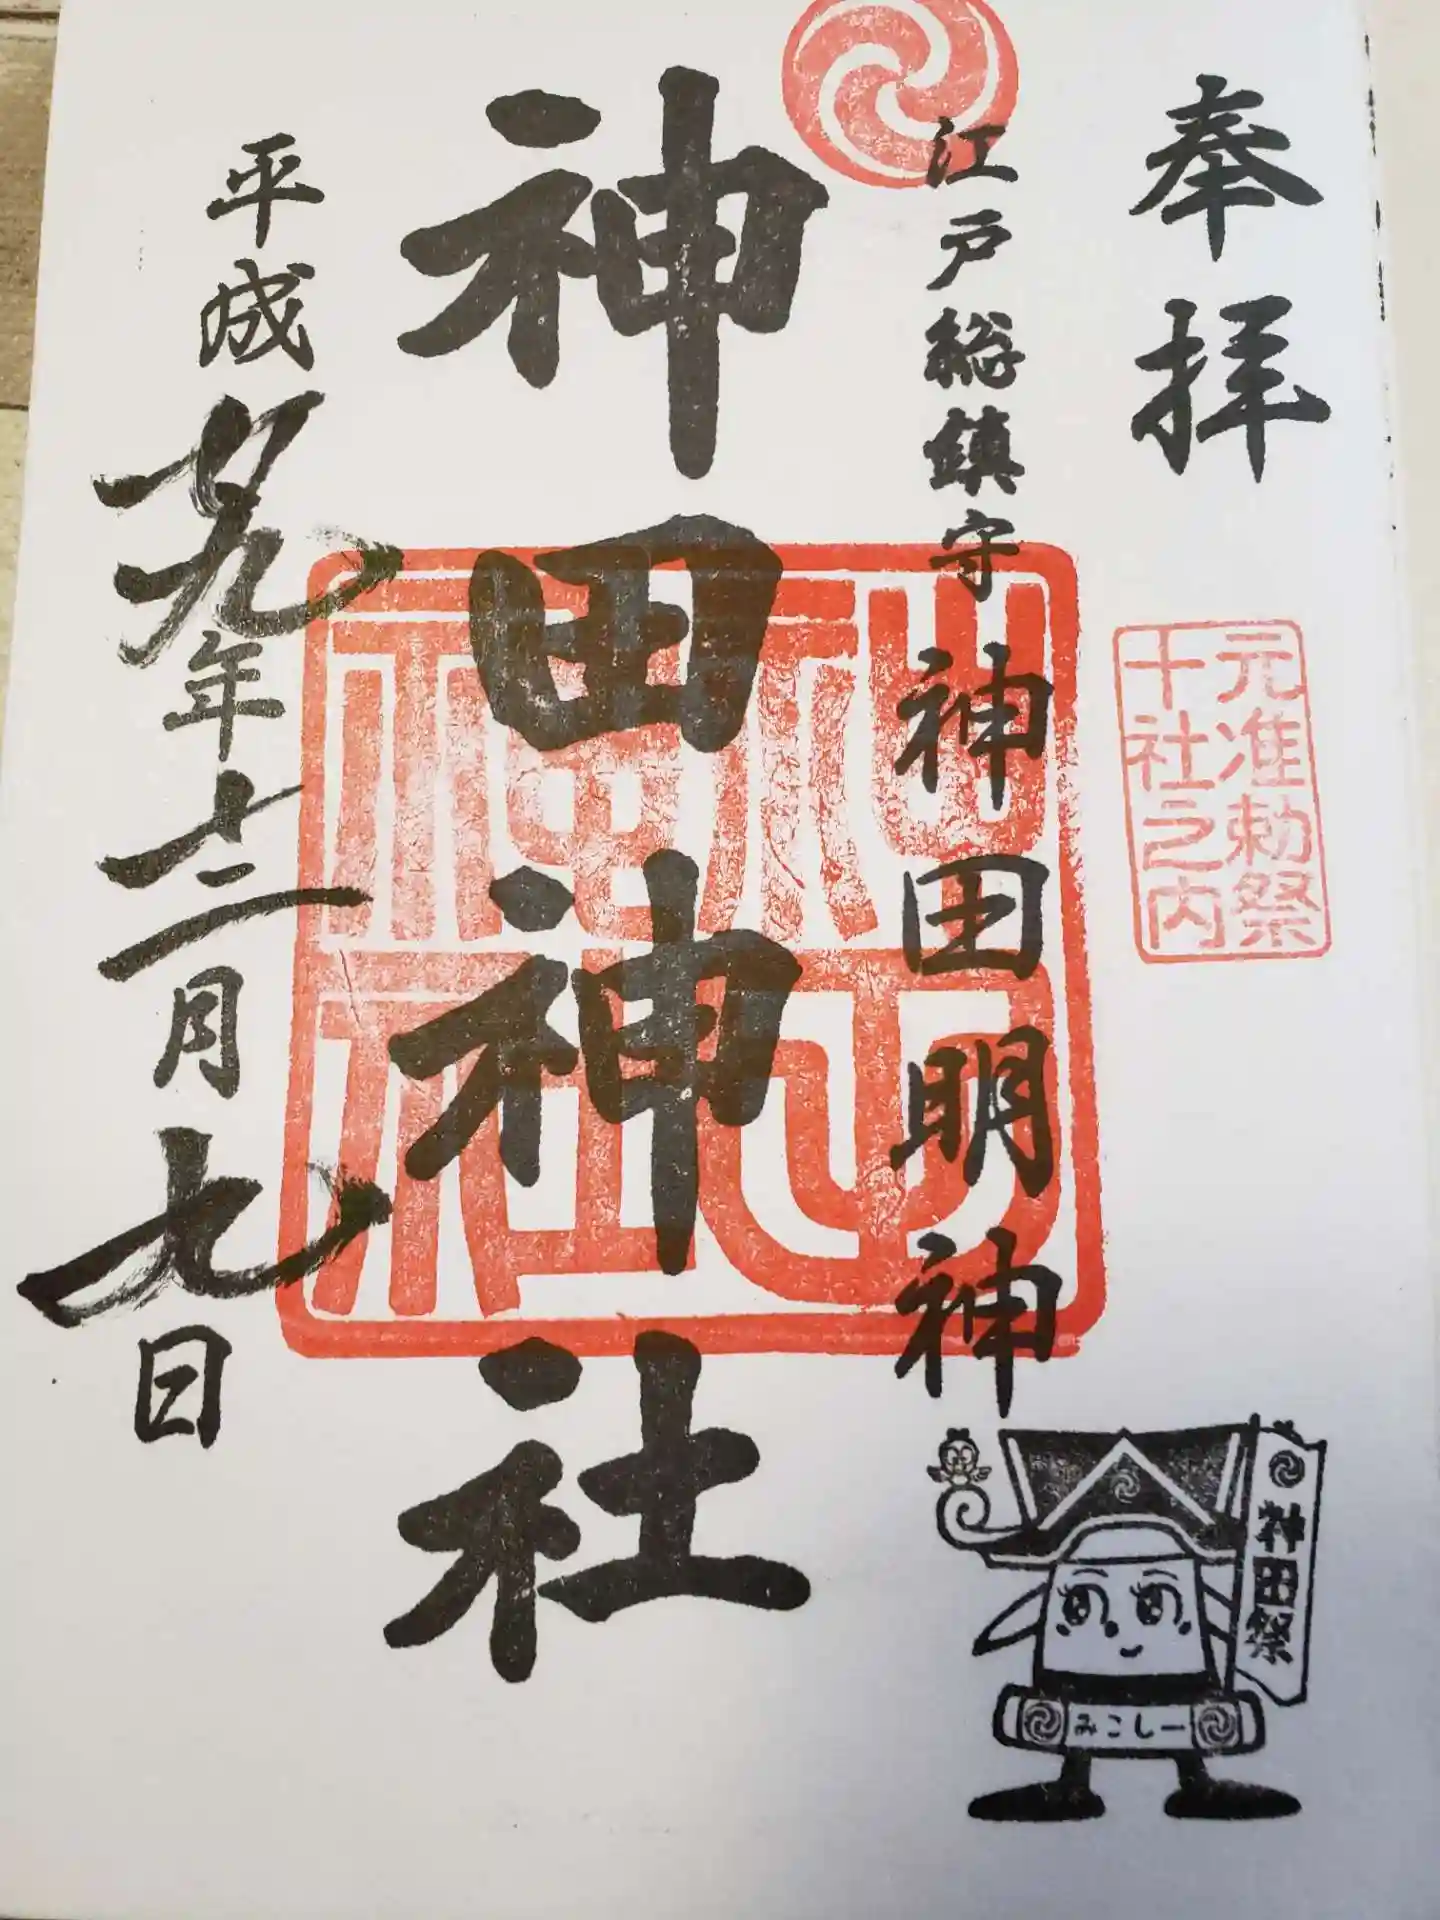 奉拝
元准勅祭
十社之内
江戸総鎮守
神田明神
神田神社
平成廿九年十二月七日
神田祭
みこしー